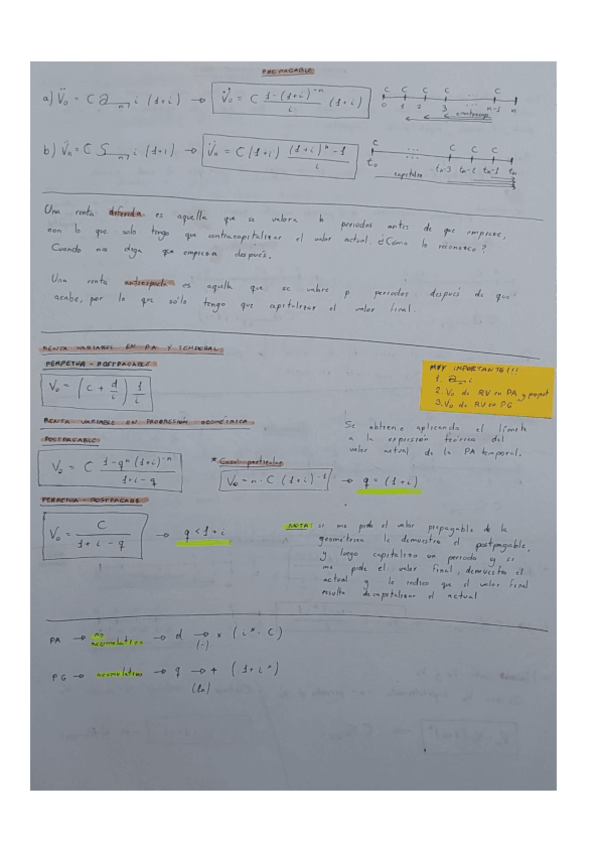 PREPAGABLE
a) V̈₀ = C a n¬ i (1+i) → V̈₀ = C (1-(1+i)^-n)/i (1+i)
C C C C C
0 1 2 3 ... n-1 n
b) V̈n = C S n¬ i (1+i) → V̈n = C (1+i) ((1+i)^n - 1)/i
C ... C C C
t₀ tn-3 tn-2 tn-1 tn
capitaliza
Una renta diferida es aquella que se valora k periodos antes de que empiece,
con lo que solo tengo que contracapitalizar el valor actual. ¿Cómo lo reconozco?
Cuando nos diga que empieza después.
Una renta anticipada es aquella que se valora p periodos después de que
acabe, por lo que sólo tengo que capitalizar el valor final.
RENTA VARIABLE EN PA Y TEMPORAL
PERPETUA - POSTPAGABLE
V₀ = (C + d/i) 1/i
MUY IMPORTANTE!!!
1. a n¬ i
2. V₀ de RV en PA y perpet
3. V₀ de RV en PG
RENTA VARIABLE EN PROGRESIÓN GEOMÉTRICA
Se obtiene aplicando el límite
a la expresión teórica del
valor actual de la PA temporal.
POSTPAGABLE
V₀ = C (1-q^n (1+i)^-n)/(1+i-q)
* Caso particular
V₀ = n · C (1+i)^-1 → q = (1+i)
PERPETUA - POSTPAGABLE
V₀ = C/(1+i-q) → q < 1+i
NOTA: si me pide el valor prepagable de la
geométrica le demuestro el postpagable,
y luego capitalizo un periodo y si
me pide el valor final, demuestro el
actual y le indico que el valor final
resulta de capitalizar el actual
PA → no acumulativo → d → × (i* · C)
(-)
PG → acumulativo → q → + (1+i*)